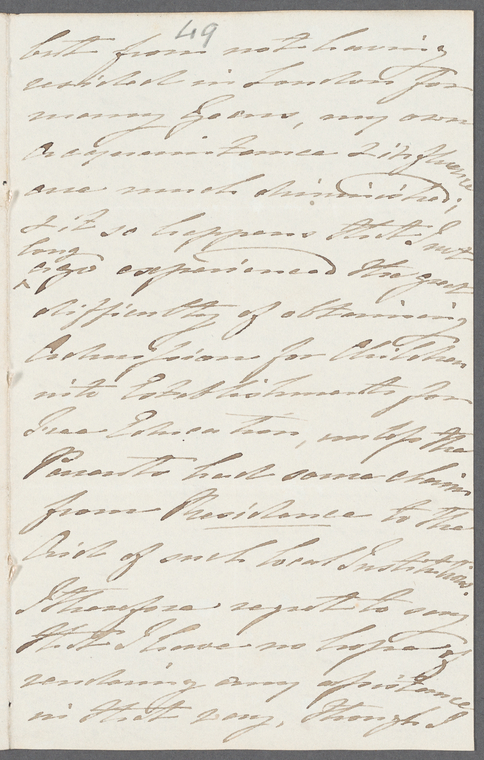 49
but from not having
resided in London for
many Years, my own
acquaintance & influence
are much diminished;
& it so happens that I not
long
ago experienced the great
difficulty of obtaining
Admission for Children
into Establishments for
Free Education, unless the
Parents had some claim
from Residence to the
Aid of such local Institutions.
I therefore regret to say
that I have no hope of
rendering any assistance
in that way, though I